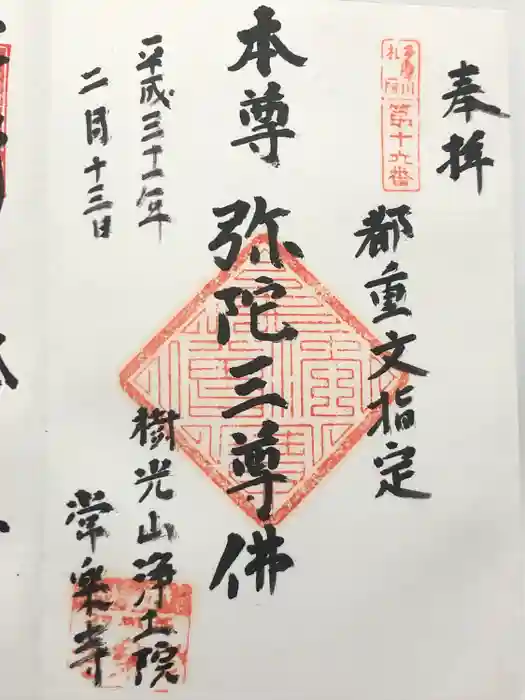 奉拝
第十九番
都重文指定
本尊 弥陀三尊佛
平成三十一年
二月十三日
樹光山浄土院
常楽寺